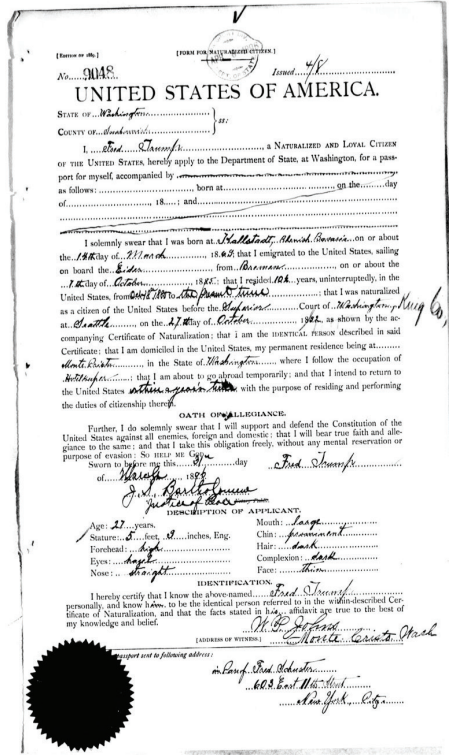 [EDITION OF 1889.]
[FORM FOR NATURALIZED CITIZEN.]
No. 9048.
Issued 4/8
UNITED STATES OF AMERICA.
STATE OF Washington
COUNTY OF Snohomish } ss:
I, Fred Trump, a NATURALIZED AND LOYAL CITIZEN
OF THE UNITED STATES, hereby apply to the Department of State, at Washington, for a pass-
port for myself, accompanied by
as follows: , born at , on the day
of , 18 ; and
I solemnly swear that I was born at Kallstadt, Rhenish Bavaria on or about
the 14th day of March, 18 ; that I emigrated to the United States, sailing
on board the Eider from Bremen, on or about the
7th day of October 1885; that I resided 10½ years, uninterruptedly, in the
United States, from to the present time that I was naturalized
as a citizen of the United States before the Superior Court of Washington, King Co,
at Seattle, on the 27th day of October, 1892, as shown by the ac-
companying Certificate of Naturalization; that I am the IDENTICAL PERSON described in said
Certificate; that I am domiciled in the United States, my permanent residence being at
Monte Cristo, in the State of Washington where I follow the occupation of
Hotelkeeper; that I am about to go abroad temporarily; and that I intend to return to
the United States within a year's time with the purpose of residing and performing
the duties of citizenship therein.
OATH OF ALLEGIANCE.
Further, I do solemnly swear that I will support and defend the Constitution of the
United States against all enemies, foreign and domestic; that I will bear true faith and alle-
giance to the same; and that I take this obligation freely, without any mental reservation or
purpose of evasion: SO HELP ME GOD.
Sworn to before me this 31 day
Fred Trump
of March, 18
J. S. Bartholomew
Justice of Peace
DESCRIPTION OF APPLICANT.
Age: 27 years.
Mouth: large
Stature: 5 feet, 9 inches, Eng.
Chin: prominent
Forehead: high
Hair: dark
Eyes: hazel
Complexion: dark
Nose: straight
Face: thin
IDENTIFICATION.
I hereby certify that I know the above-named Fred Trump
personally, and know him to be the identical person referred to in the within-described Cer-
tificate of Naturalization, and that the facts stated in his affidavit are true to the best of
my knowledge and belief.
W. P. Johns
[ADDRESS OF WITNESS.] Monte Cristo Wash
Passport sent to following address:
in care of Fred Schuster
603 East 11th Street
New York, City